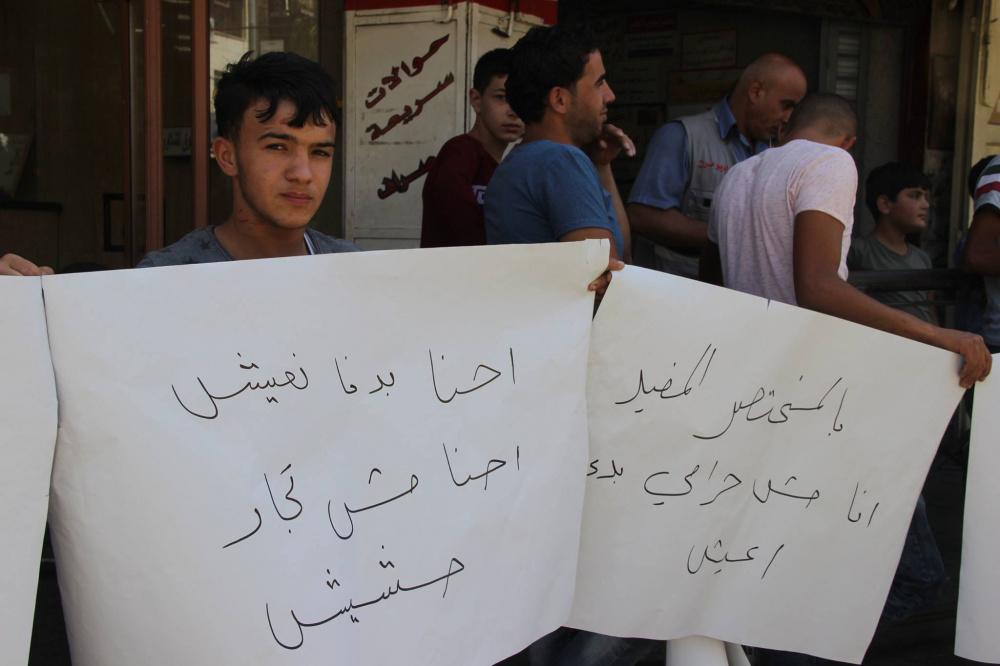 حوالات
سريعة
صراف
احنا بدنا نعيش
احنا مش تجار
حشيش
بالمختصر المفيد
انا مش حرامي بدي
اعيش